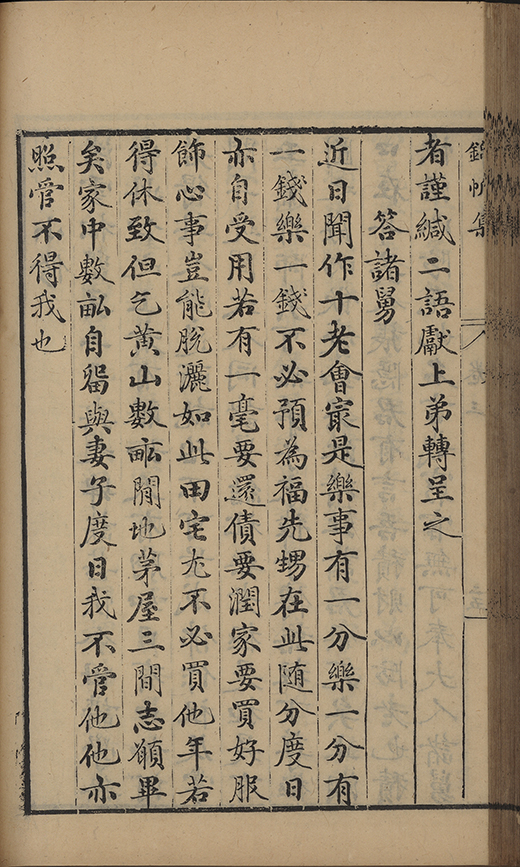 錦帆集
卷三
者謹緘二語獻上弟轉呈之
答諸舅
近日聞作十老會㝡是樂事有一分樂一分有
一錢樂一錢不必預為福先甥在此随分度日
亦自受用若有一毫要還債要潤家要買好服
飾心事豈能脫灑如此田宅尤不必買他年若
得休致但乞黃山數畝閒地茅屋三間志願畢
矣家中數畝自留與妻子度日我不管他他亦
照管不得我也